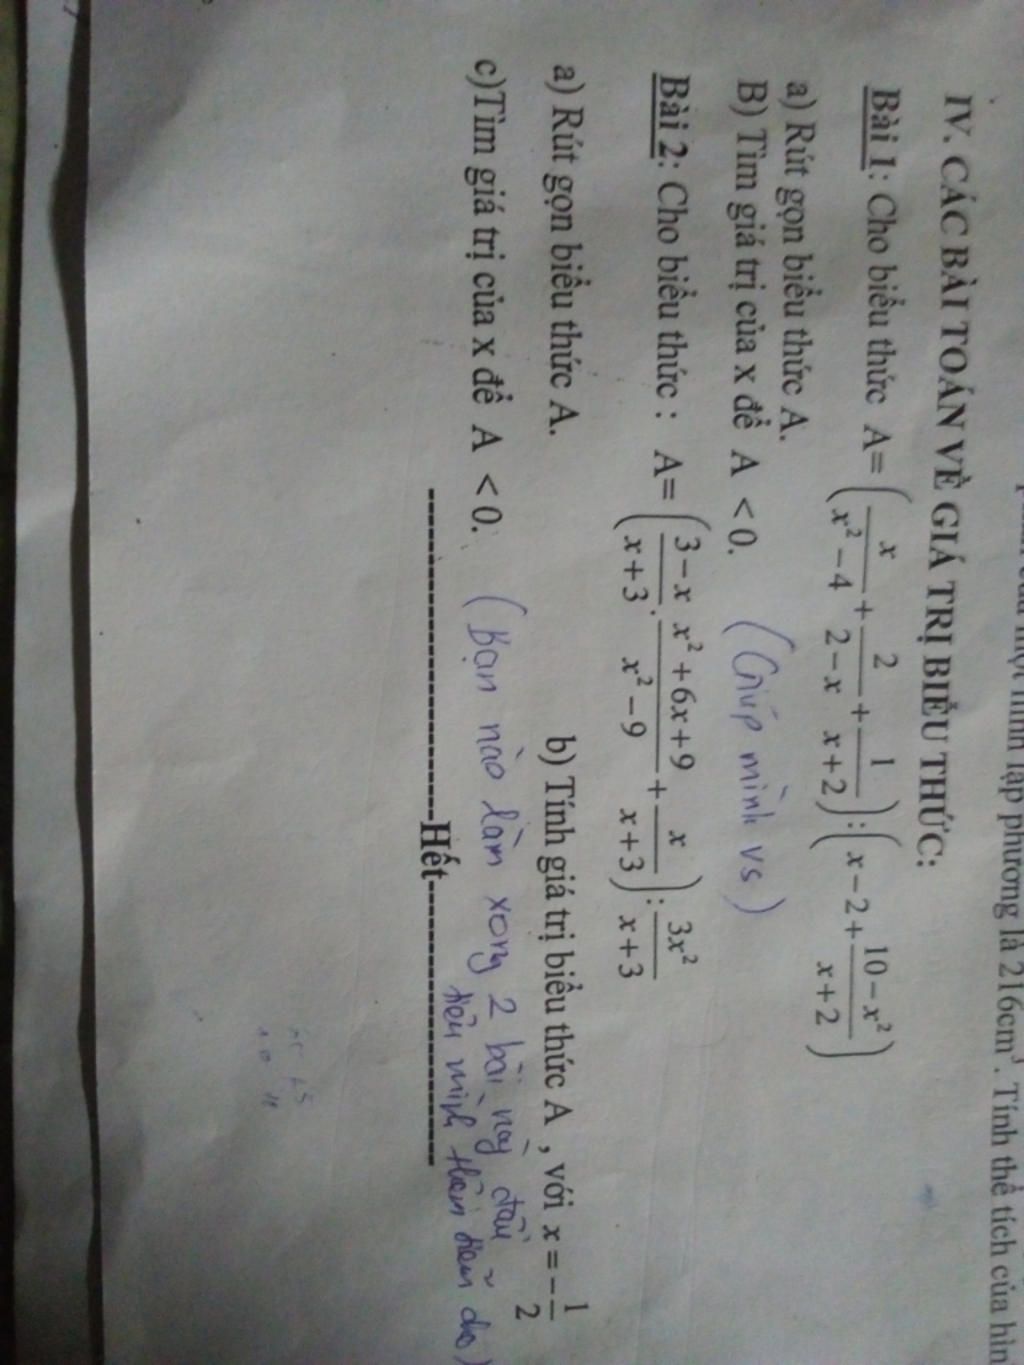 một hình lập phương là 216cm³. Tính thể tích của hìn
IV. CÁC BÀI TOÁN VỀ GIÁ TRỊ BIỂU THỨC:
Bài 1: Cho biểu thức A= (x/(x²−4) + 2/(2−x) + 1/(x+2)) : (x−2+ (10−x²)/(x+2))
a) Rút gọn biểu thức A.
B) Tìm giá trị của x để A <0. (Giúp mình vs)
Bài 2: Cho biểu thức : A= ((3−x)/(x+3) . (x²+6x+9)/(x²−9) + x/(x+3)) : 3x²/(x+3)
a) Rút gọn biểu thức A. b) Tính giá trị biểu thức A , với x=−1/2
c)Tìm giá trị của x để A <0. (Bạn nào làm xong 2 bài này đầu
tiên mình thêm điểm cho)
------------------------Hết------------------------